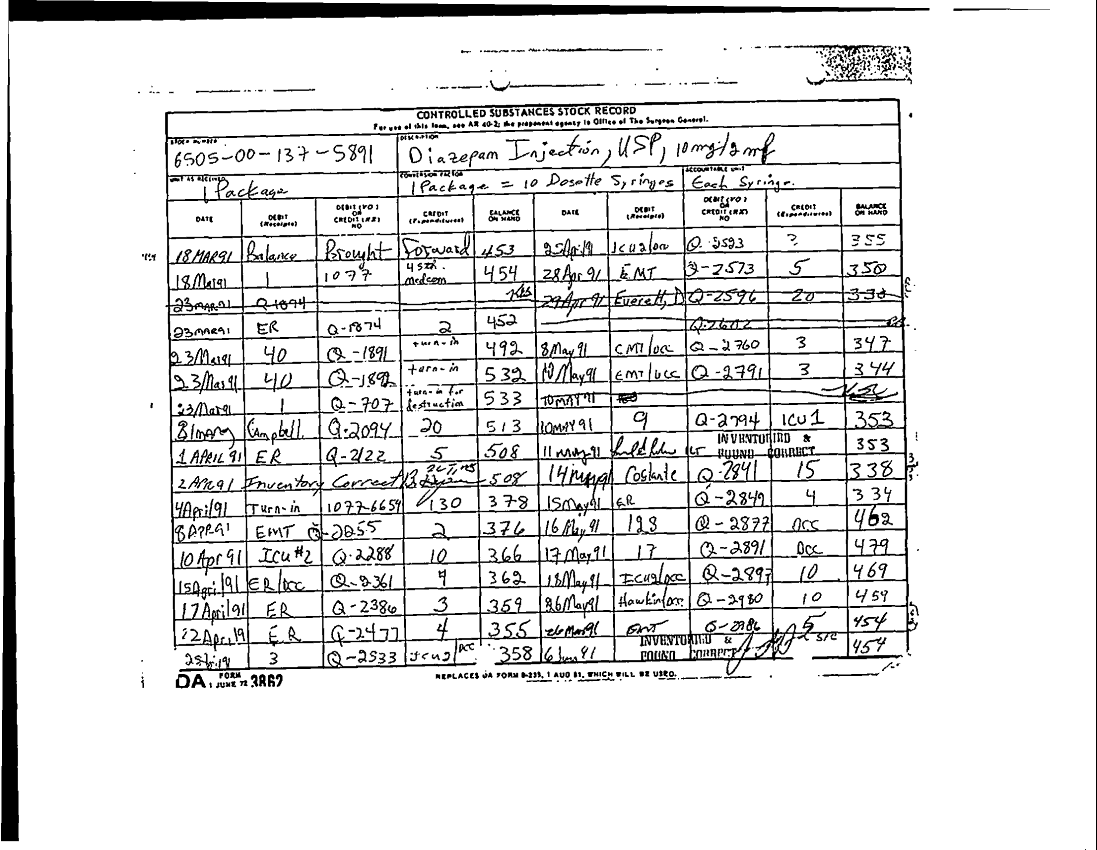 CONTROLLED SUBSTANCES STOCK RECORD
For use of this form, see AR 40-2; the proponent agency is Office of The Surgeon General.
STOCK NUMBER DESCRIPTION
6505-00-137-5891 Diazepam Injection, USP, 10mg/2ml
UNIT AS RECEIVED CONVERSION FACTOR ACCOUNTABLE UNIT
1 Package 1 Package = 10 Dosette Syringes Each Syringe.
DATE DEBIT (Receipts) DEBIT (VO) OR CREDIT (RX) NO CREDIT (Expenditures) BALANCE ON HAND DATE DEBIT (Receipts) DEBIT (VO) OR CREDIT (RX) NO CREDIT (Expenditures) BALANCE ON HAND
18 MAR 91 Balance Brought Forward 453 Q-2523 ? 355
18 Mar 91 1 1077 medcom 454 28 Apr 91 EMT Q-2573 5 350
23 MAR 91 Q-1874 29 Apr 91 Everett, D Q-2596 20 330
23 MAR 91 ER Q-1874 2 452
23 Mar 91 40 Q-1891 turn-in 492 8 May 91 EMT/occ Q-2760 3 347
23 Mar 91 40 Q-1892 turn-in 532 10 May 91 EMT/occ Q-2791 3 344
23 Mar 91 1 Q-707 turn-in for destruction 533 10 MAY 91
31 Mar 91 Campbell Q-2094 20 513 10 MAY 91 9 Q-2794 ICU1 353
1 APRIL 91 ER Q-2122 5 508 11 May 91 INVENTORIED & FOUND CORRECT 353
2 APR 91 Inventory Correct 508 14 May 91 Costante Q-2841 15 338
4 April 91 Turn-in 1077-6654 130 378 15 May 91 ER Q-2849 4 334
8 APR 91 EMT Q-2255 2 376 16 May 91 128 Q-2877 occ 462
10 Apr 91 ICU #2 Q-2288 10 366 17 May 91 17 Q-2891 occ 479
15 April 91 ER/occ Q-2361 4 362 18 May 91 ICU2/occ Q-2897 10 469
17 April 91 ER Q-2386 3 359 26 May 91 Hawkin/occ Q-2980 10 459
22 Apr 91 ER Q-2477 4 355 26 May 91 EMT Q-2986 5 454
3 Q-2533 ICU2/occ 358 6 Jun 91 INVENTORIED & FOUND CORRECT 454
DA FORM 1 JUNE 72 3862 REPLACES DA FORM 8-255, 1 AUG 61, WHICH WILL BE USED.